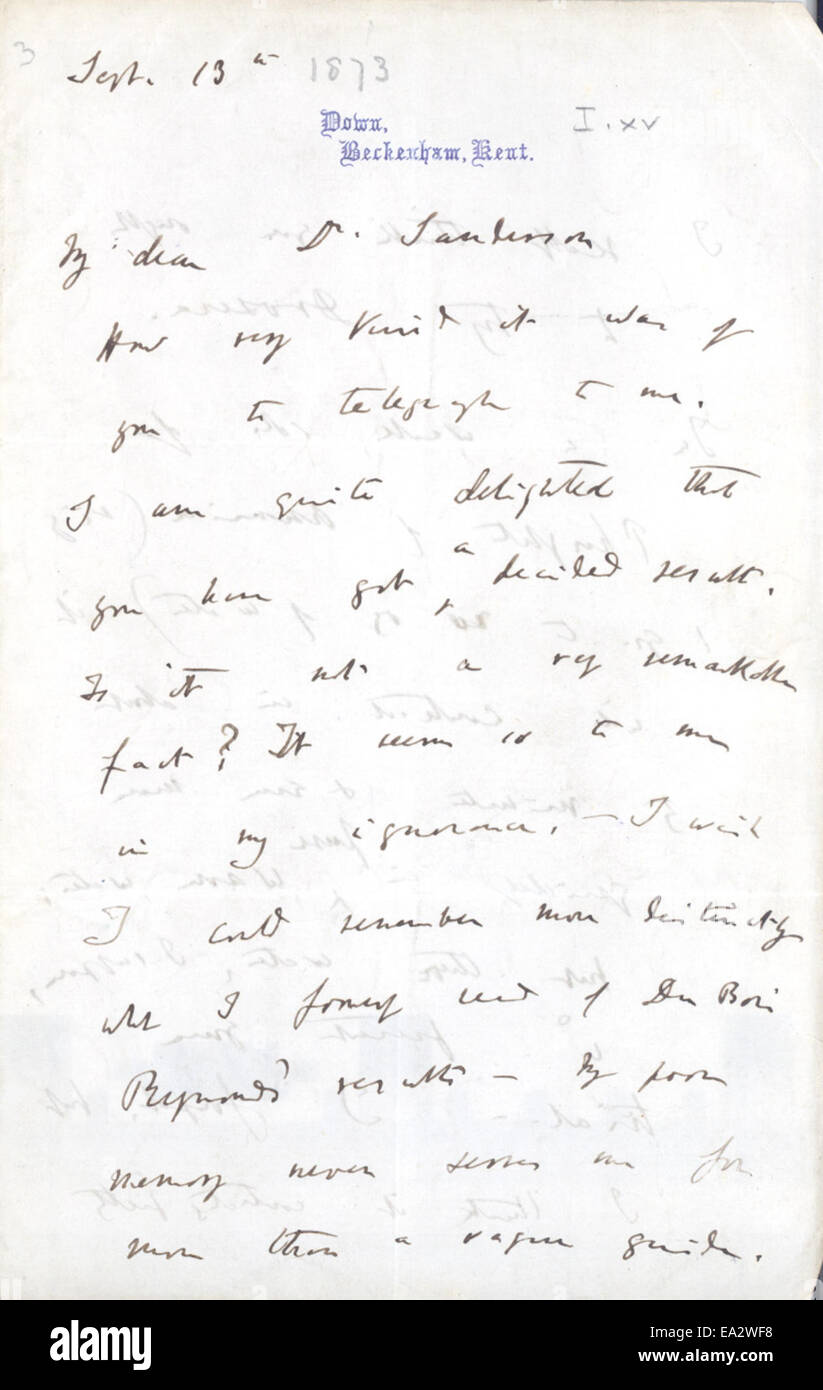 3
Sept. 13th 1873
Down,
Beckenham, Kent.
I. xv
My dear Dr. Sanderson
How very kind it was of
you to telegraph to me.
I am quite delighted that
you have got a decided result.
Is it not a very remarkable
fact? It seems so to me
in my ignorance. — I wish
I could remember more distinctly
what I formerly read of Du Bois
Reymond's results — My poor
memory never serves me for
more than a vague guide.
a
alamy
alamy stock photo
EA2WF8
www.alamy.com